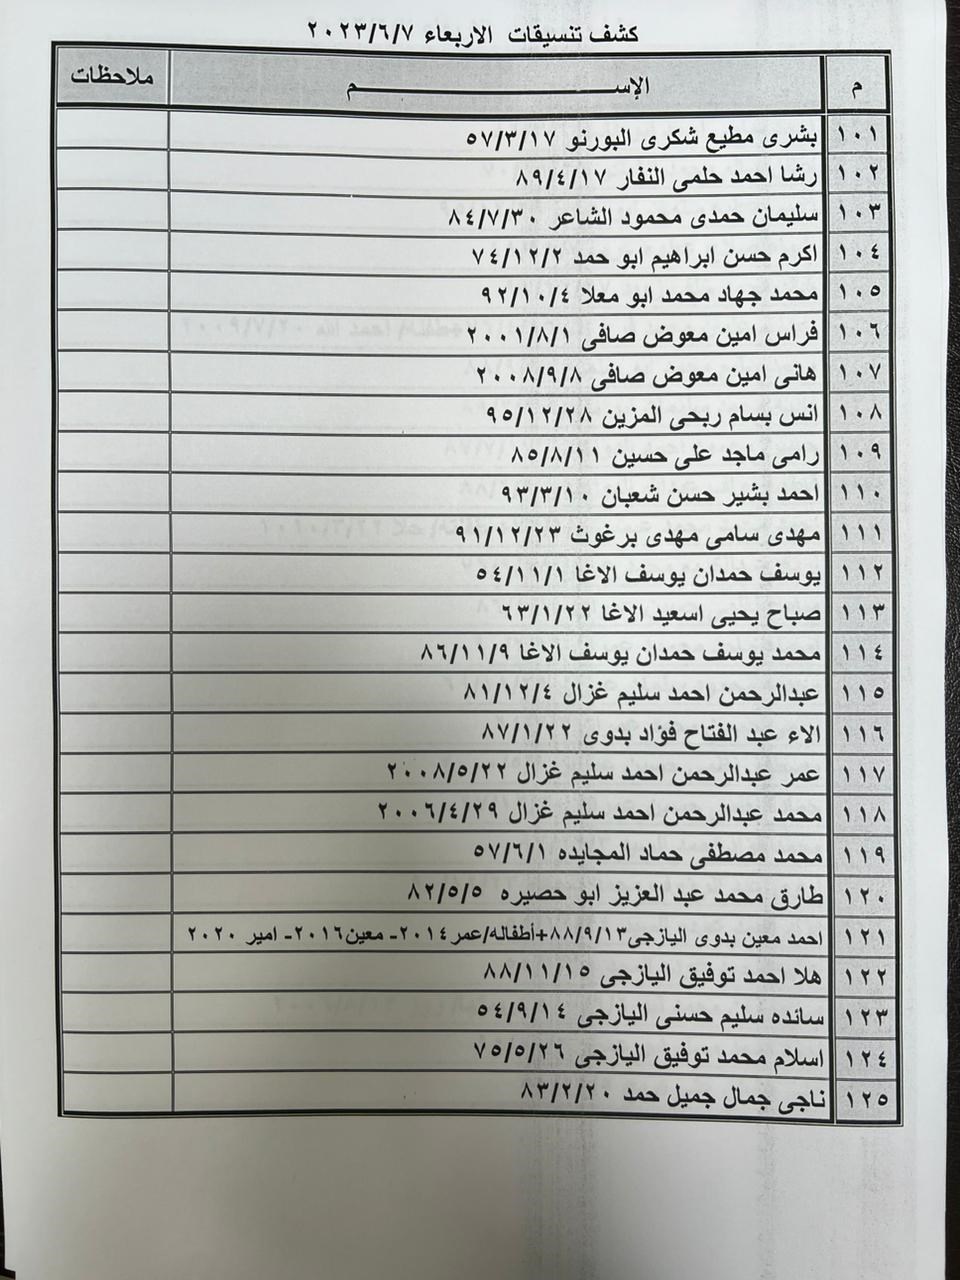 كشف تنسيقات الاربعاء ٢٠٢٣/٦/٧
م الإســـــــم ملاحظات
١٠١ بشرى مطيع شكرى البورنو ٥٧/٣/١٧
١٠٢ رشا احمد حلمى النفار ٨٩/٤/١٧
١٠٣ سليمان حمدى محمود الشاعر ٨٤/٧/٣٠
١٠٤ اكرم حسن ابراهيم ابو حمد ٧٤/١٢/٢
١٠٥ محمد جهاد محمد ابو معلا ٩٢/١٠/٤
١٠٦ فراس امين معوض صافى ٢٠٠١/٨/١
١٠٧ هانى امين معوض صافى ٢٠٠٨/٩/٨
١٠٨ انس بسام ربحى المزين ٩٥/١٢/٢٨
١٠٩ رامى ماجد على حسين ٨٥/٨/١١
١١٠ احمد بشير حسن شعبان ٩٣/٣/١٠
١١١ مهدى سامى مهدى برغوث ٩١/١٢/٢٣
١١٢ يوسف حمدان يوسف الاغا ٥٤/١١/١
١١٣ صباح يحيى اسعيد الاغا ٦٣/١/٢٢
١١٤ محمد يوسف حمدان يوسف الاغا ٨٦/١١/٩
١١٥ عبدالرحمن احمد سليم غزال ٨١/١٢/٤
١١٦ الاء عبد الفتاح فؤاد بدوى ٨٧/١/٢٢
١١٧ عمر عبدالرحمن احمد سليم غزال ٢٠٠٨/٥/٢٢
١١٨ محمد عبدالرحمن احمد سليم غزال ٢٠٠٦/٤/٢٩
١١٩ محمد مصطفى حماد المجايده ٥٧/٦/١
١٢٠ طارق محمد عبد العزيز ابو حصيره ٨٢/٥/٥
١٢١ احمد معين بدوى اليازجى٨٨/٩/١٣+أطفاله/عمر٢٠١٤- معين٢٠١٦- امير ٢٠٢٠
١٢٢ هلا احمد توفيق اليازجى ٨٨/١١/١٥
١٢٣ سائده سليم حسنى اليازجى ٥٤/٩/١٤
١٢٤ اسلام محمد توفيق اليازجى ٧٥/٥/٢٦
١٢٥ ناجى جمال جميل حمد ٨٣/٢/٢٠